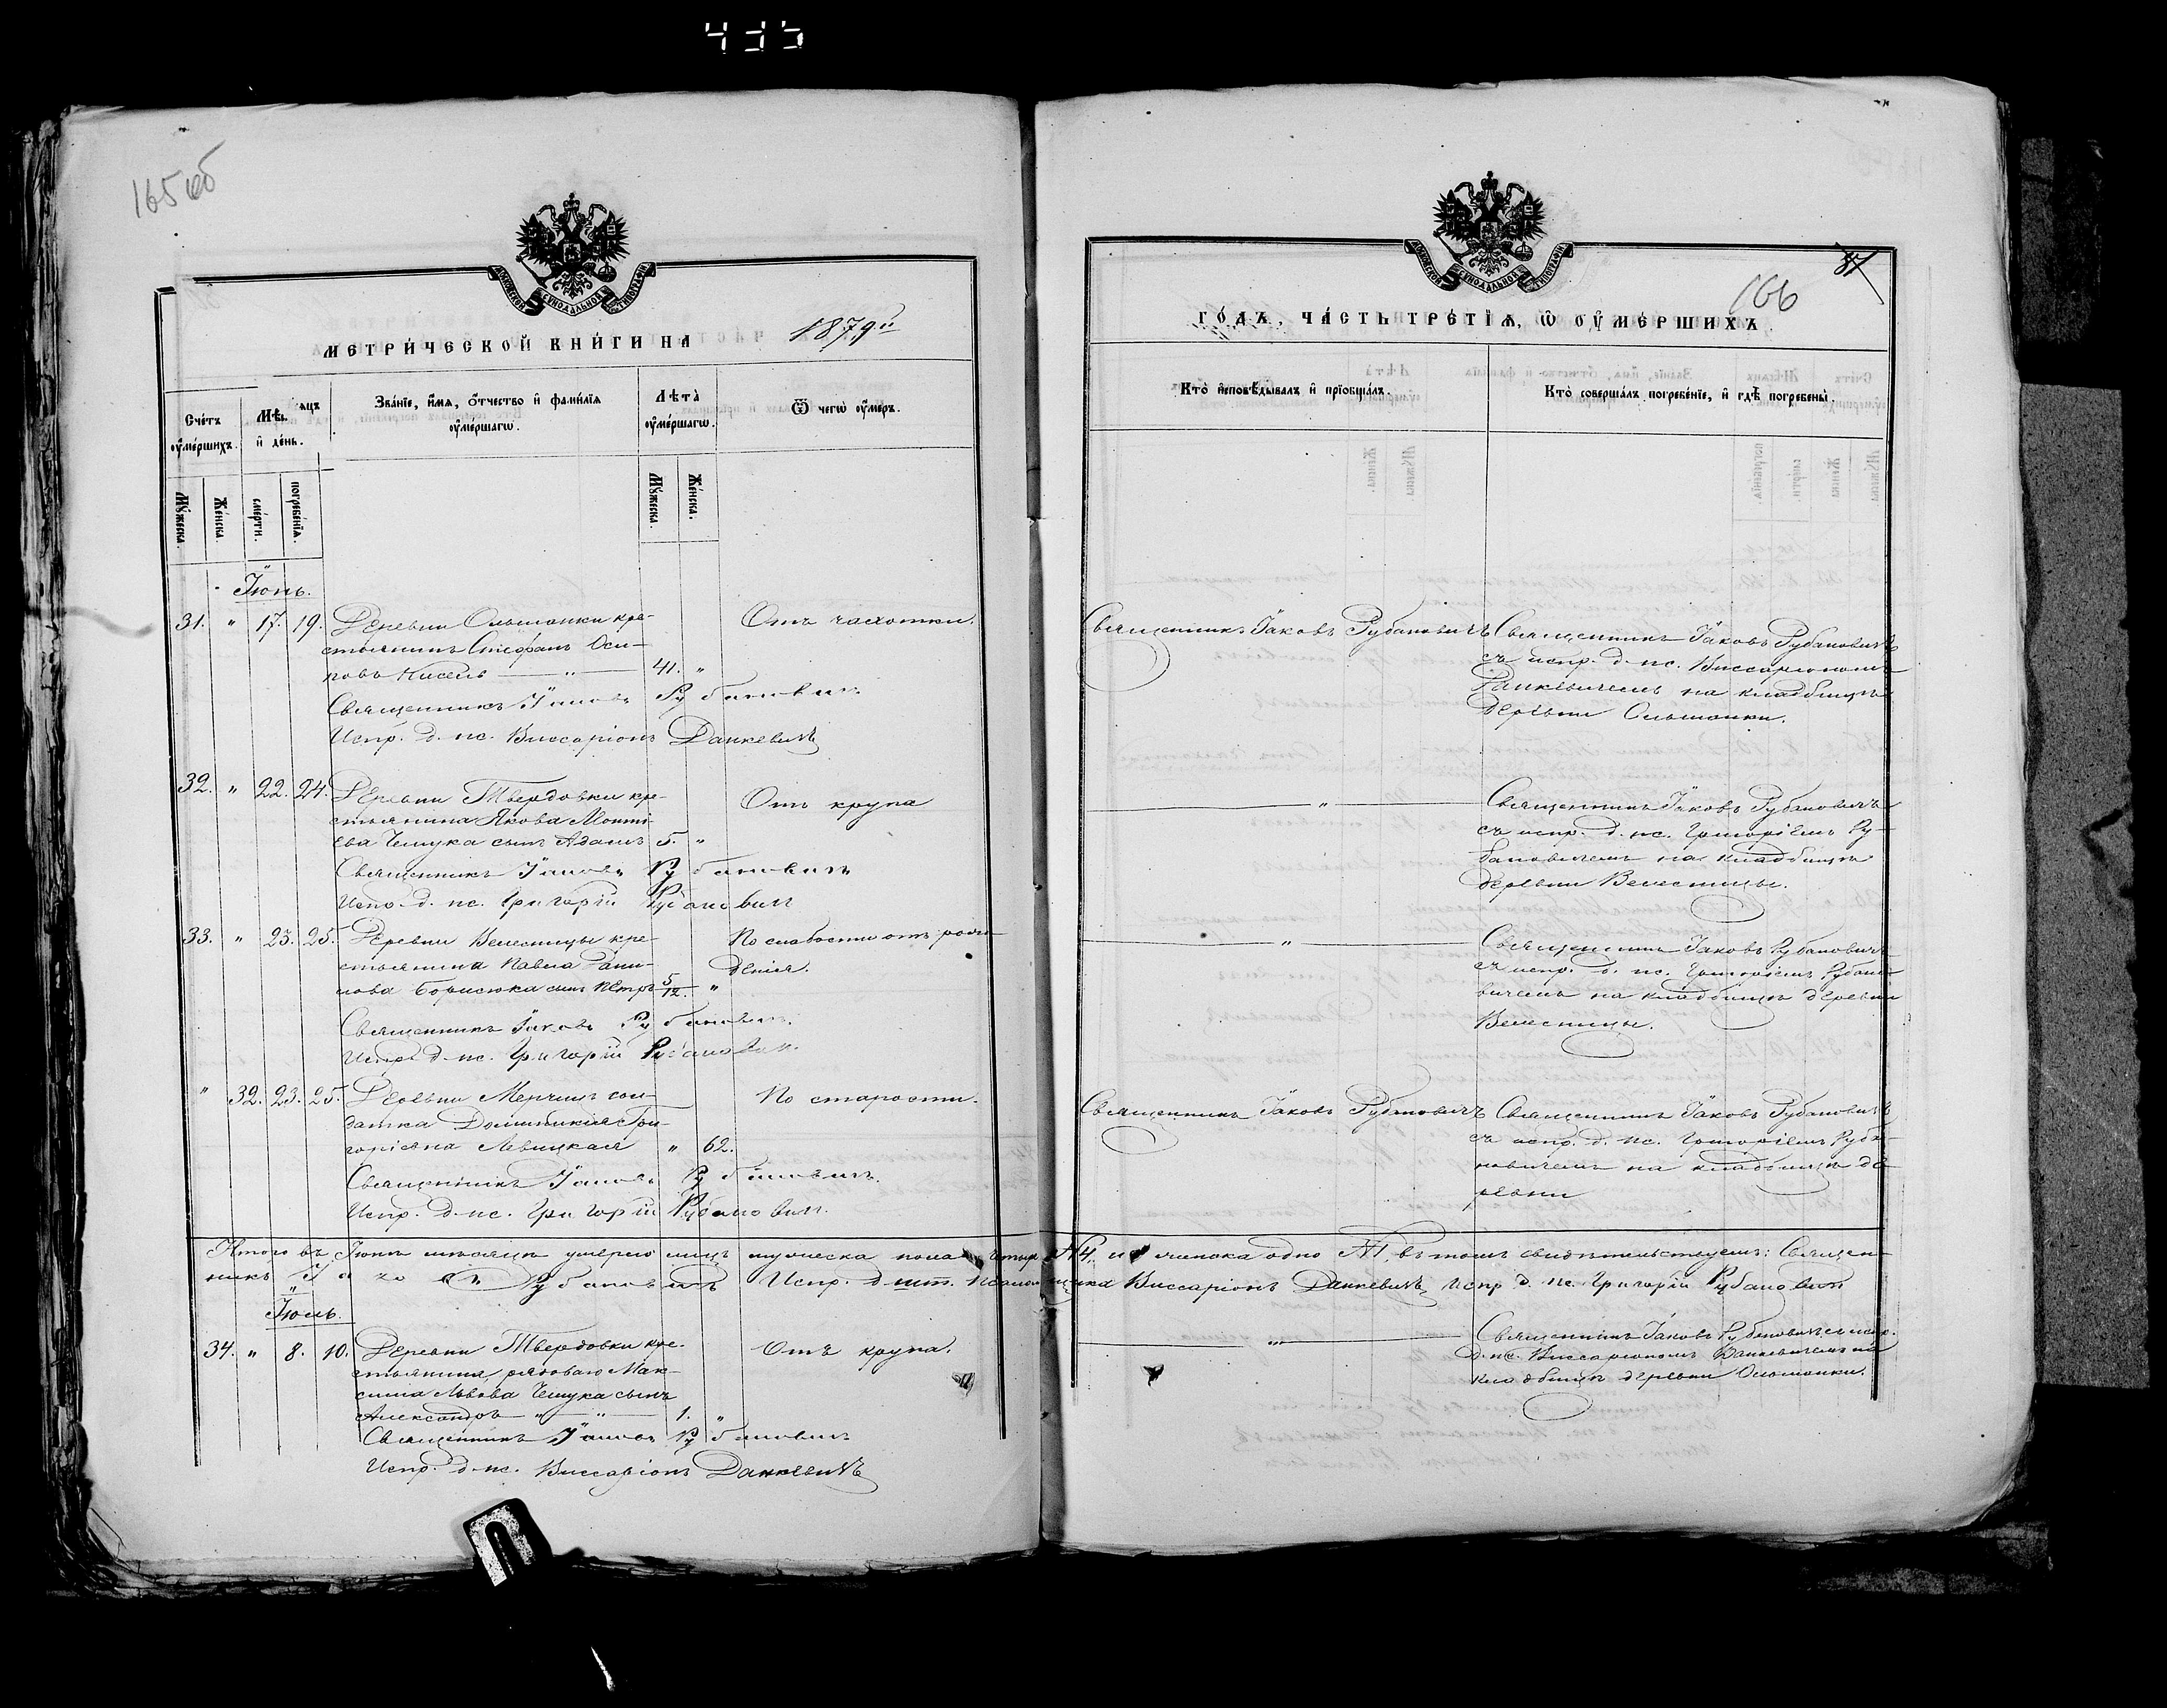 435
165 об
МЕТРИЧЕСКОЙ КНИГИ НА 1879й
Счетъ умершихъ.
Мѣсяцъ и день.
Званіе, имя, отчество и фамилія умершаго.
Лѣта умершаго.
Ѿ чегѡ умеръ.
Мужеска.
Женска.
смерти.
погребенія.
Мужеска.
Женска.
Іюнь.
31. " 17. 19. Деревни Ольшанки кре-
стьянинъ Стефанъ Оси-
повъ Кисель — " — 41. "
Отъ чахотки.
Священникъ Іаковъ Рубановичъ
Испр. д. пс. Виссаріонъ Данкевичъ
32. " 22. 24. Деревни Твердовки кре-
стьянина Якова
сынъ Адамъ 5. "
Отъ крупа
Священникъ Іаковъ Рубановичъ
Испр. д. пс. Григорій Рубановичъ
33. " 23. 25. Деревни Велесницы кре-
стьянина Павла Дани-
лова Борисюка сынъ Петръ 5/12. "
По слабости отъ рож-
денія.
Священникъ Іаковъ Рубановичъ.
Испр. д. пс. Григорій Рубановичъ.
" 32. 23. 25. Деревни Мерчицъ сол-
датка Доминикія Гри-
горіена Левицкая " 62.
По старости.
Священникъ Іаковъ Рубановичъ.
Испр. д. пс. Григорій Рубановичъ.
Итого въ Іюнѣ мѣсяцѣ умерло лицъ мужеска пола № 4, и женска одно № 1, въ томъ свидѣтельствуемъ: Священ-
никъ Іаковъ Рубановичъ Испр. д. шт. псаломщика Виссаріонъ Данкевичъ, Испр. д. пс. Григорій Рубановичъ
Іюль.
34. " 8. 10. Деревни Твердовки кре-
стьянина, рядоваго Мак-
сима Львова сынъ
Александръ — " — " — 1. "
Отъ крупа.
Священникъ Іаковъ Рубановичъ
Испр. д. пс. Виссаріонъ Данкевичъ
166
ГОДЪ, ЧАСТЬ ТРЕТІЯ, Ѡ УМЕРШИХЪ.
Кто исповѣдывалъ и пріобщалъ.
Кто совершалъ погребеніе, и гдѣ погребены.
Священникъ Іаковъ Рубановичъ
Священникъ Іаковъ Рубановичъ
съ испр. д. пс. Виссаріономъ
Данкевичемъ на кладбищѣ
деревни Ольшанки.
— " —
Священникъ Іаковъ Рубановичъ
съ испр. д. пс. Григоріемъ Ру-
бановичемъ на кладбищѣ
деревни Велесницы.
— " —
Священникъ Іаковъ Рубановичъ
съ испр. д. пс. Григоріемъ Рубано-
вичемъ на кладбищѣ деревни
Велесницы.
Священникъ Іаковъ Рубановичъ
Священникъ Іаковъ Рубановичъ
съ испр. д. пс. Григоріемъ Руба-
новичемъ на кладбищѣ де-
ревни
— " —
Священникъ Іаковъ Рубановичъ съ испр.
д. пс. Виссаріономъ Данкевичемъ на
кладбищѣ деревни Ольшанки.